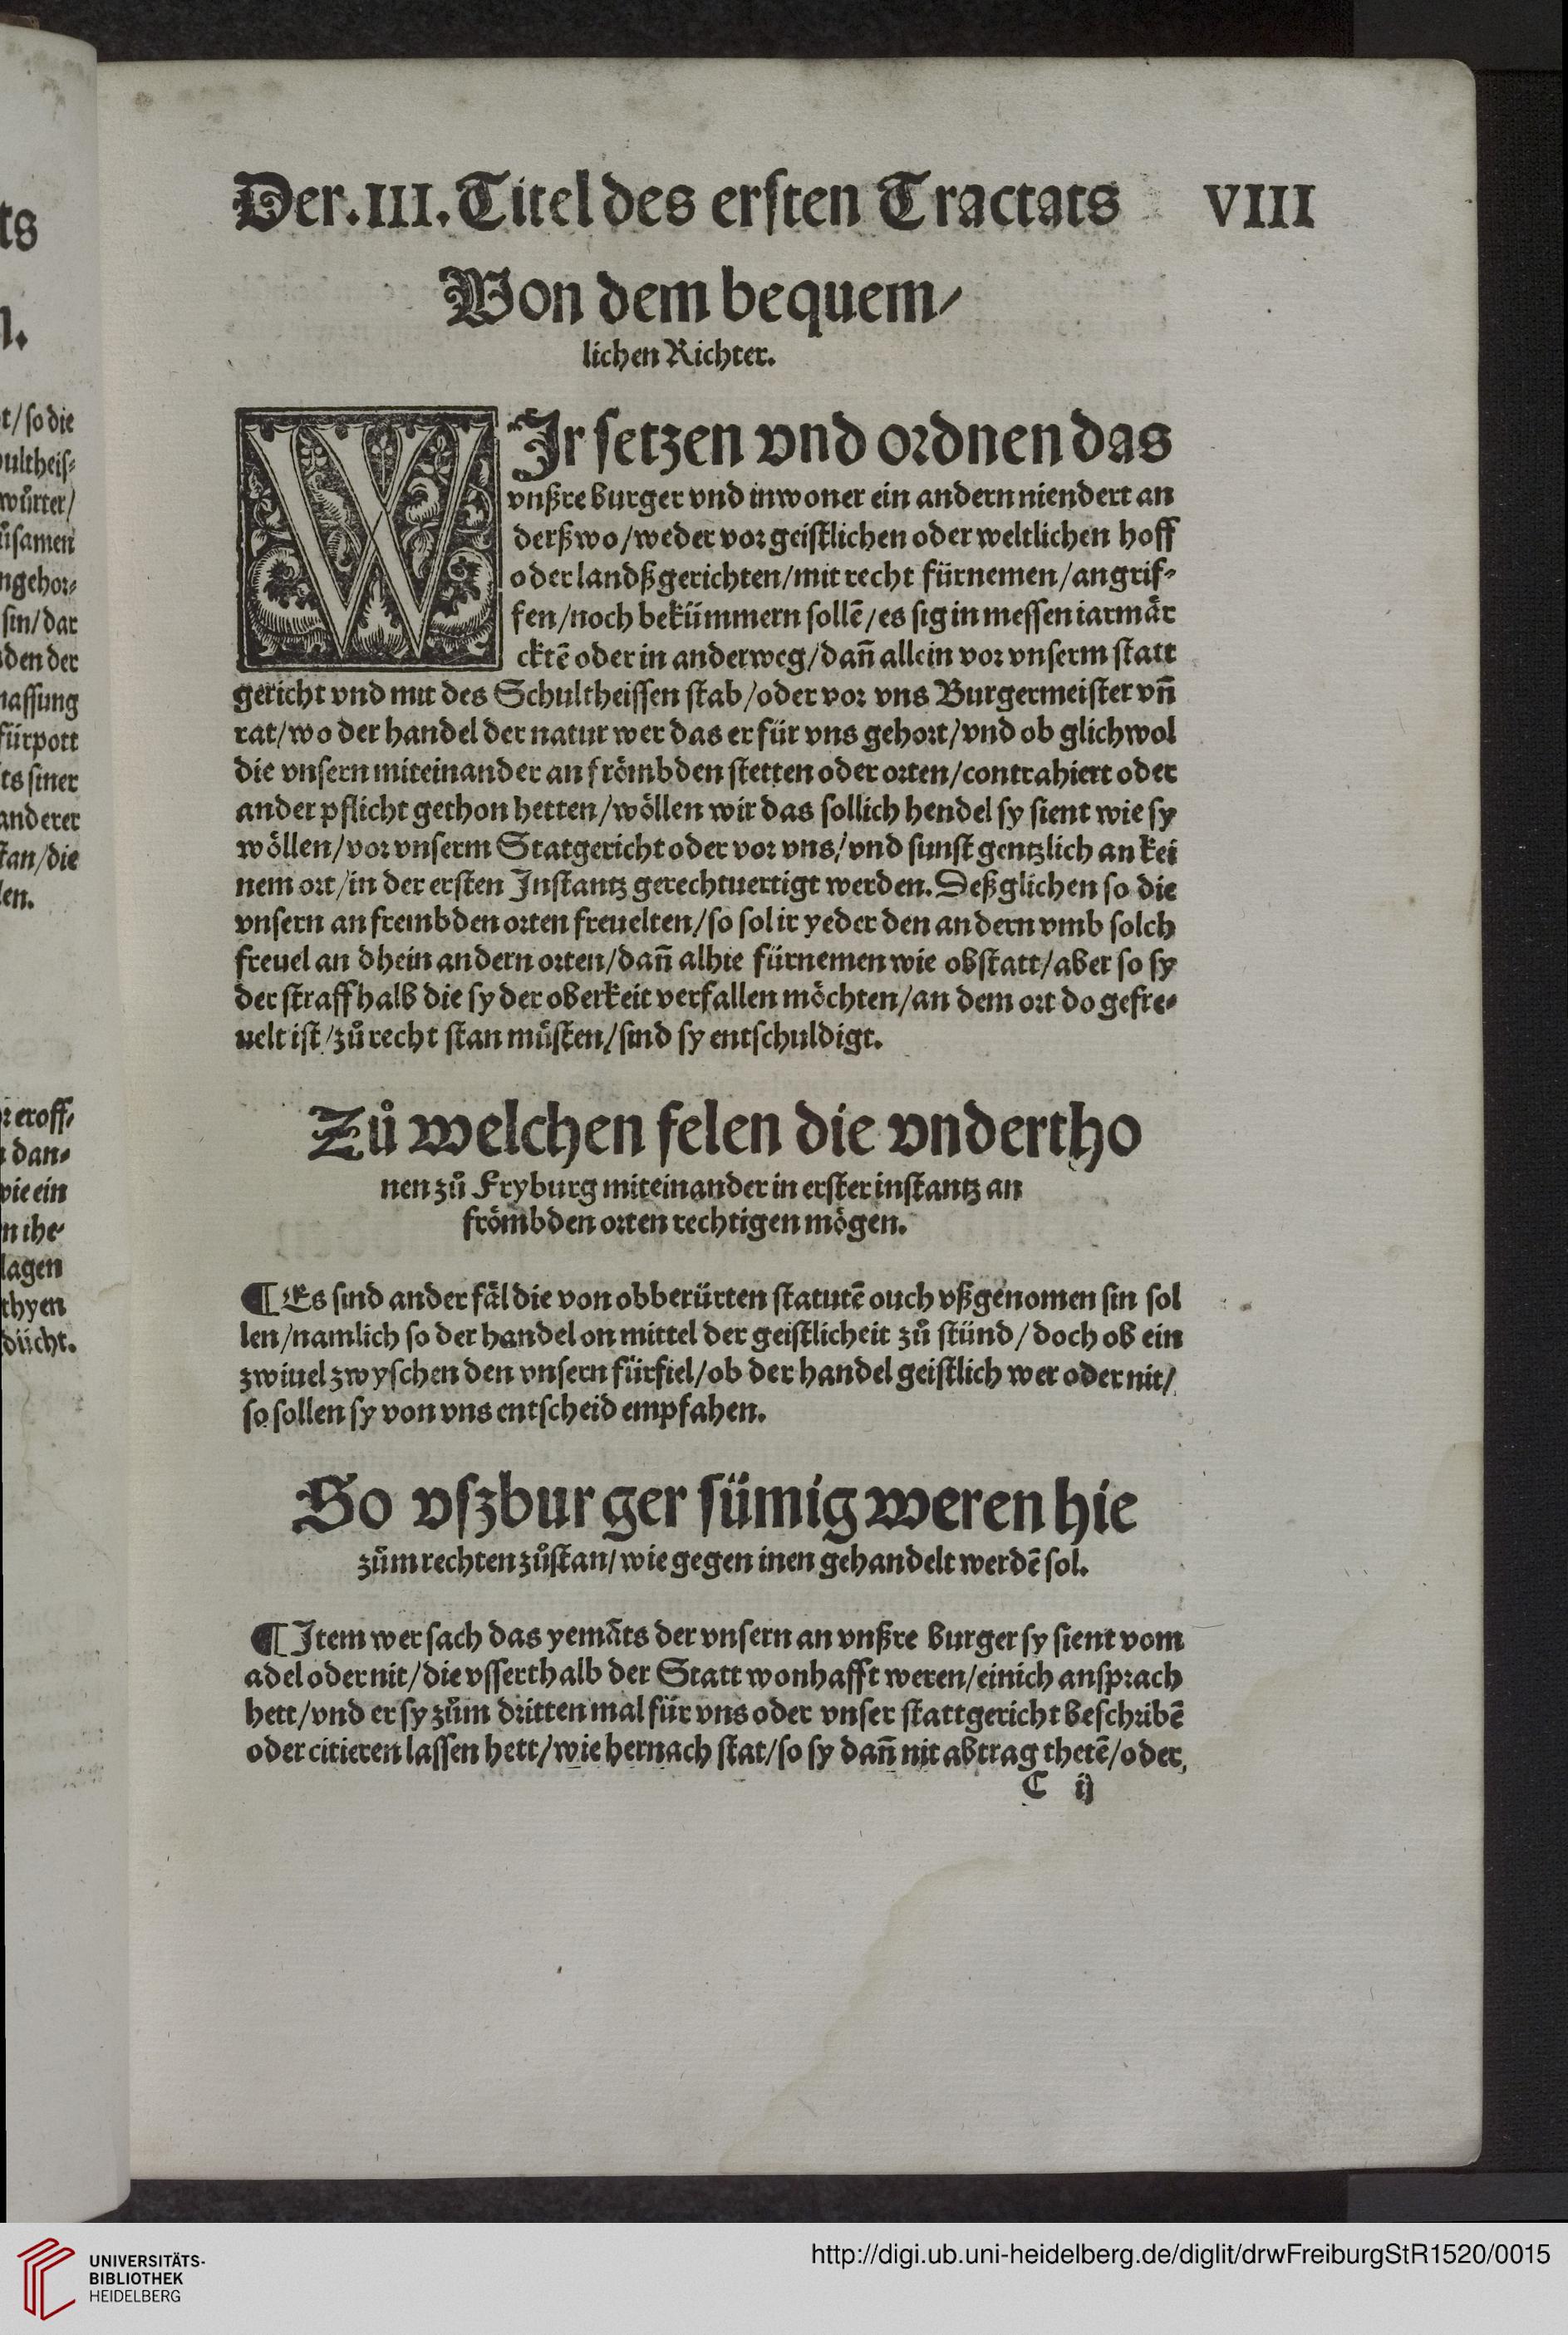 ts
l.
t/so die
ultheis⸗
würter/
üsamen
ngehor⸗
sin/dar
den der
nassung
fürpott
ts siner
anderer
stan/die
len.
r eroff⸗
dan⸗
wie ein
n the⸗
lagen
thyen
dücht.
Der.III.Titel des ersten Tractats VIII
Von dem bequem/
lichen Richter.
WIr setzen vnd ordnen das
vnßre burger vnd inwoner ein andern niendert an
derßwo/weder vor geistlichen oder weltlichen hoff
oder landßgerichten/mit recht fürnemen/angrif⸗
fen/noch bekümmern sollē/es sig in messen iarmär
cktē oder in anderweg/dañ allein vor vnserm statt
gericht vnd mit des Schultheissen stab/oder vor vns Burgermeister vñ
rat/wo der handel der natur wer das er für vns gehort/vnd ob glichwol
die vnsern miteinander an frömbden stetten oder orten/contrahiert oder
ander pflicht gethon hetten/wöllen wir das sollich hendel sy sient wie sy
wöllen/vor vnserm Statgericht oder vor vns/vnd sunst gentzlich an kei
nem ort/in der ersten Instantz gerechtuertigt werden. Deßglichen so die
vnsern an frembden orten freuelten/so sol ir yeder den andern vmb solch
freuel an dhein andern orten/dañ alhie fürnemen wie obstatt/aber so sy
der straff halb die sy der oberkeit verfallen möchten/an dem ort do gefre⸗
uelt ist/zů recht stan müsten/sind sy entschuldigt.
Zů welchen felen die vndertho
nen zů Fryburg miteinander in erster instantz an
frömbden orten rechtigen mögen.
¶ Es sind ander fäl die von obberürten statutē ouch vßgenomen sin sol
len/namlich so der handel on mittel der geistlicheit zů stünd/doch ob ein
zwiuel zwyschen den vnsern fürfiel/ob der handel geistlich wer oder nit/
so sollen sy von vns entscheid empfahen.
So vszburger sümig weren hie
zům rechten zůstan/wie gegen inen gehandelt werdē sol.
¶ Item wer sach das yemāts der vnsern an vnßre burger sy sient vom
adel oder nit/die vsserthalb der Statt wonhafft weren/einich ansprach
hett/vnd er sy zům dritten mal für vns oder vnser stattgericht beschribē
oder citieren lassen hett/wie hernach stat/so sy dañ nit abtrag thetē/oder
C ij
UNIVERSITÄTS-
BIBLIOTHEK
HEIDELBERG
http://digi.ub.uni-heidelberg.de/diglit/drwFreiburgStR1520/0015